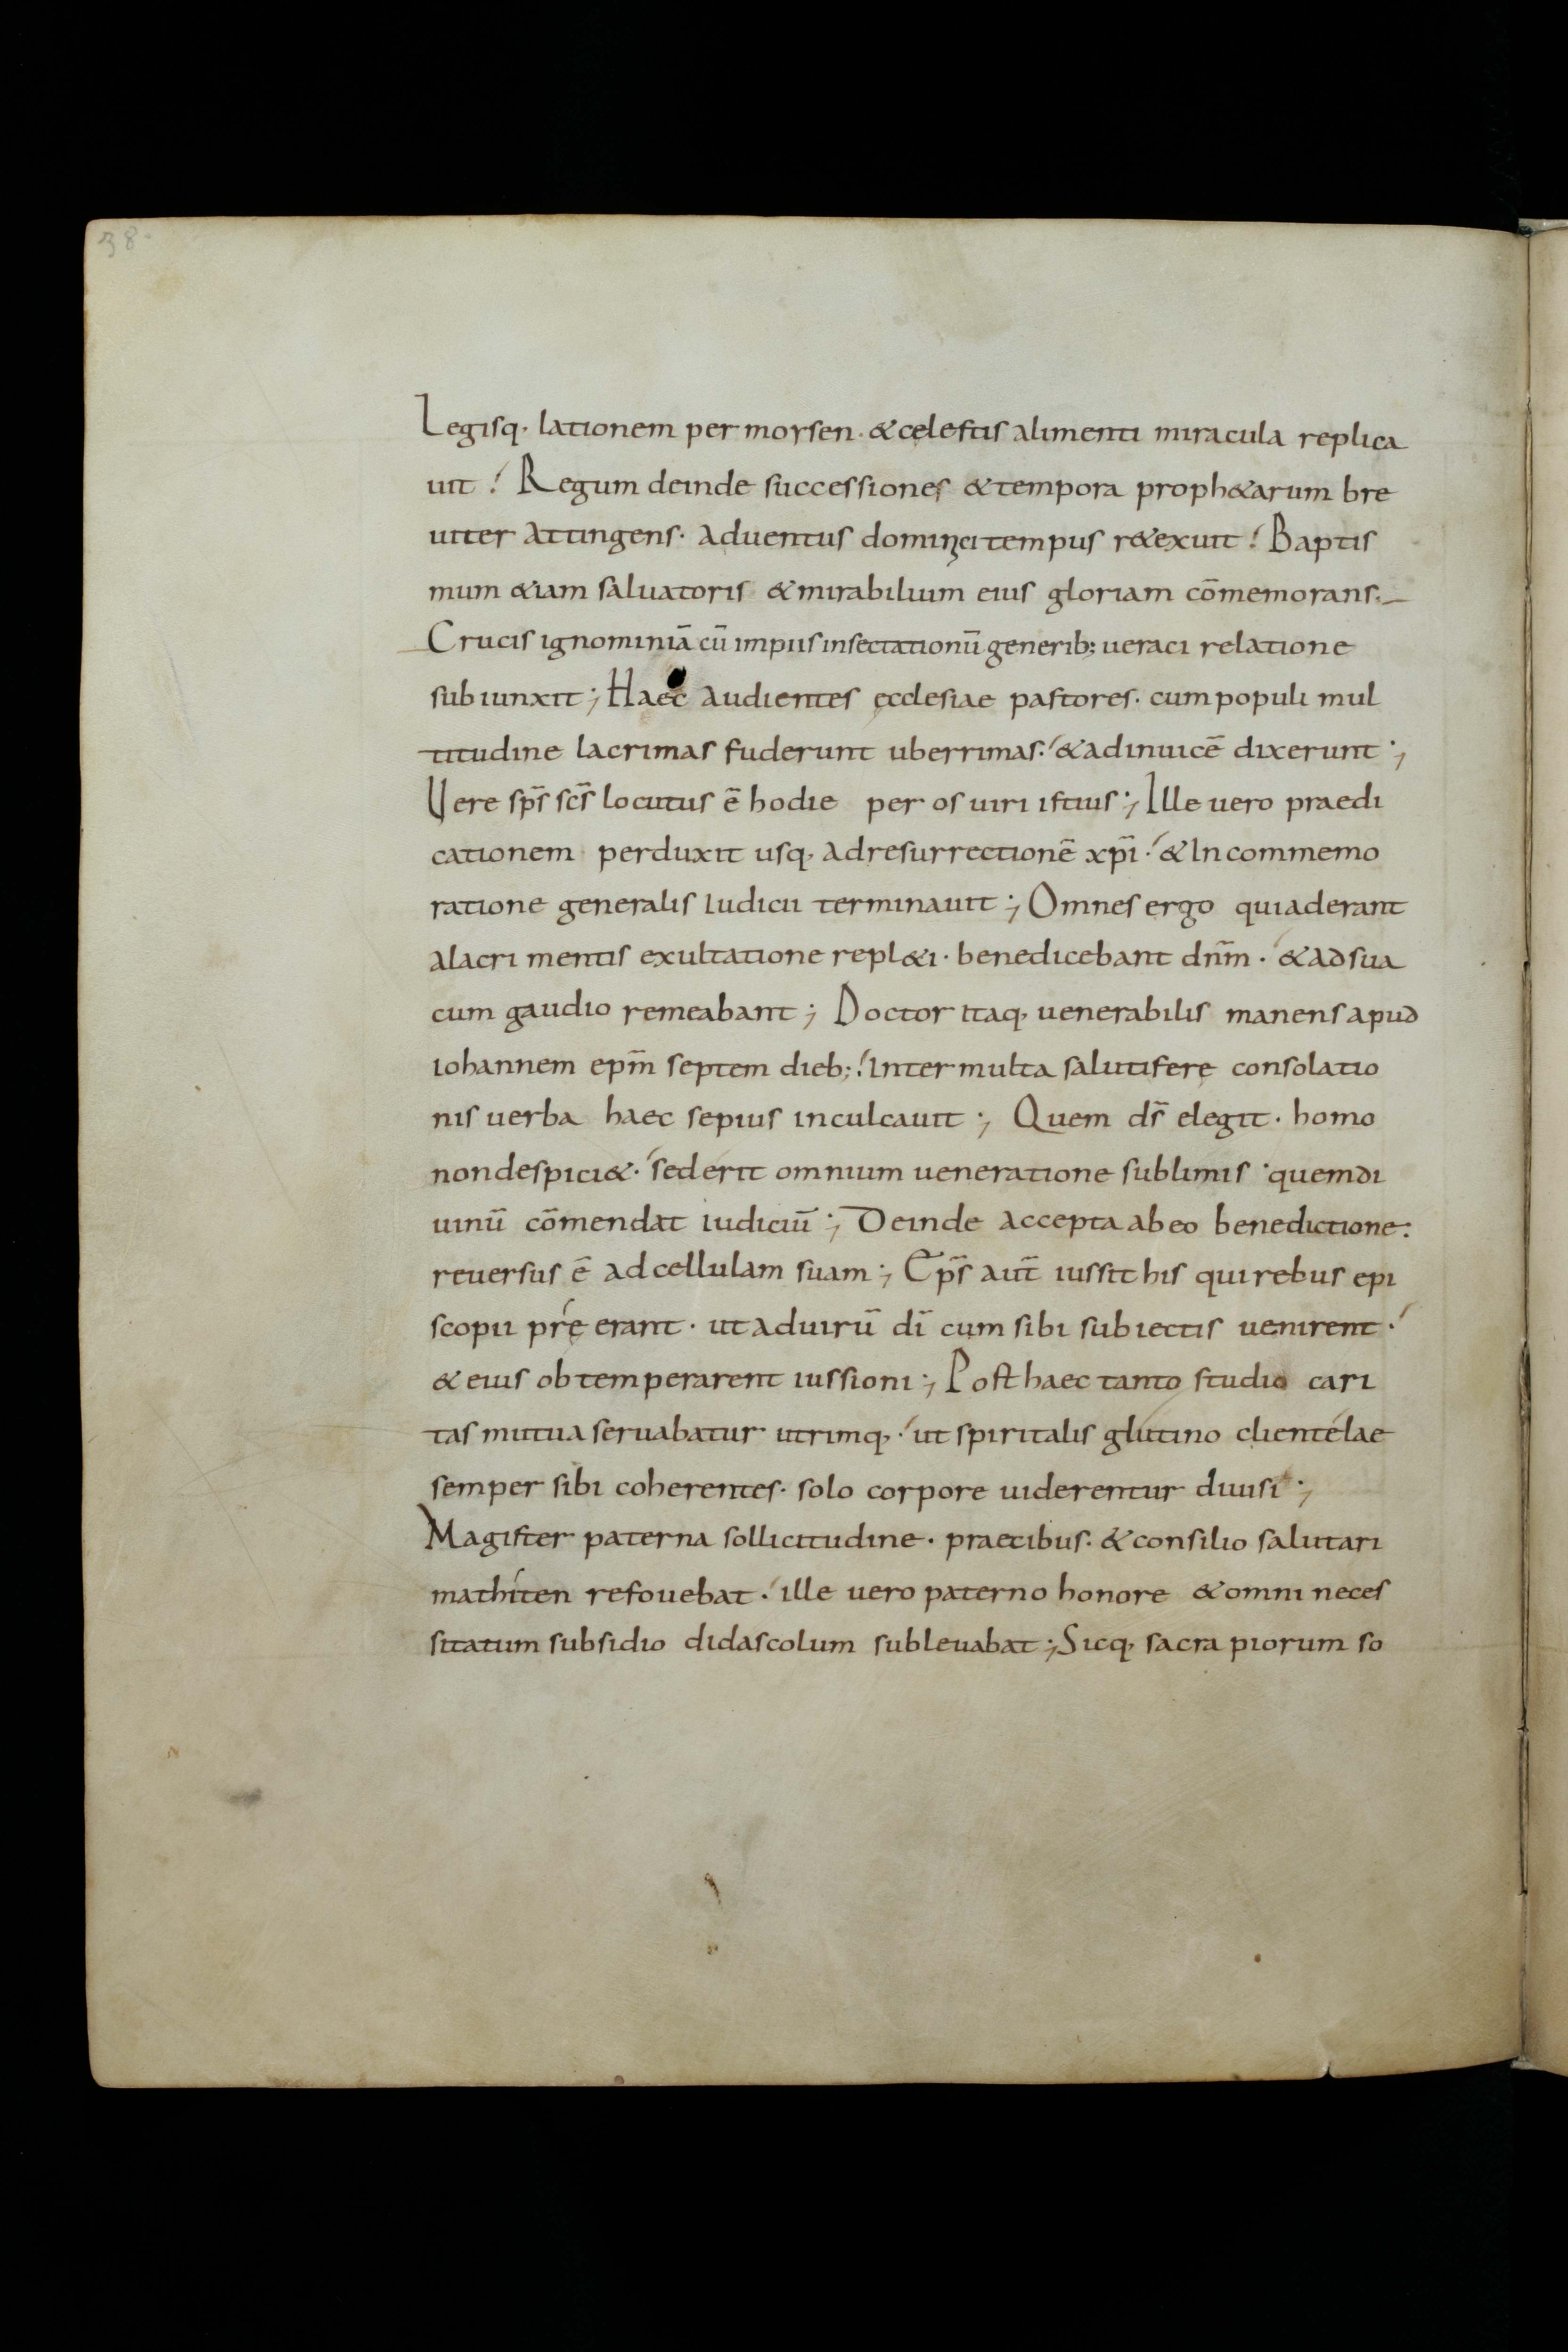 38.
Legisq, lationem per moysen · & cęlestis alimenti miracula replica
uit ! Regum deinde successiones & tempora proph&arum bre
uiter attingens · aduentus dominici tempus r&exuit ! Baptis
mum &iam saluatoris & mirabilium eius gloriam cōmemorans ·
Crucis ignominiā cū impiis insectationū generib; ueraci relatione
subiunxit ; Haec audientes ęcclesiae pastores · cum populi mul
titudine lacrimas fuderunt uberrimas ! & adinuicē dixerunt ;
Uere sp̄s sc̄s locutus ē hodie per os uiri istius ; Ille uero praedi
cationem perduxit usq, ad resurrectionē xp̄i ! & In commemo
ratione generalis Iudicii terminauit ; Omnes ergo qui aderant
alacri mentis exultatione repl&i · benedicebant dn̄m ! & ad sua
cum gaudio remeabant ; Doctor itaq, uenerabilis manens apud
iohannem ep̄m septem dieb; ! Inter multa salutiferę consolatio
nis uerba haec sepius inculcauit ; Quem d̄s elegit · homo
non despici& ! sed erit omnium ueneratione sublimis · quem di
uinū cōmendat iudiciū ; Deinde accepta ab eo benedictione :
reuersus ē ad cellulam suam ; Ep̄s aut̄ iussit his qui rebus epi
scopii prę erant · ut ad uirū dī cum sibi subiectis uenirent !
& eius obtemperarent iussioni ; Post haec tanto studio cari
tas mutua seruabatur utrimq, ! ut spiritalis glutino clientélae
semper sibi coherentes · solo corpore uiderentur diuisi ;
Magister paterna sollicitudine · praecibus · & consilio salutari
mathíten refouebat ! ille uero paterno honore & omni neces
sitatum subsidio didascolum subleuabat ; Sicq, sacra piorum so